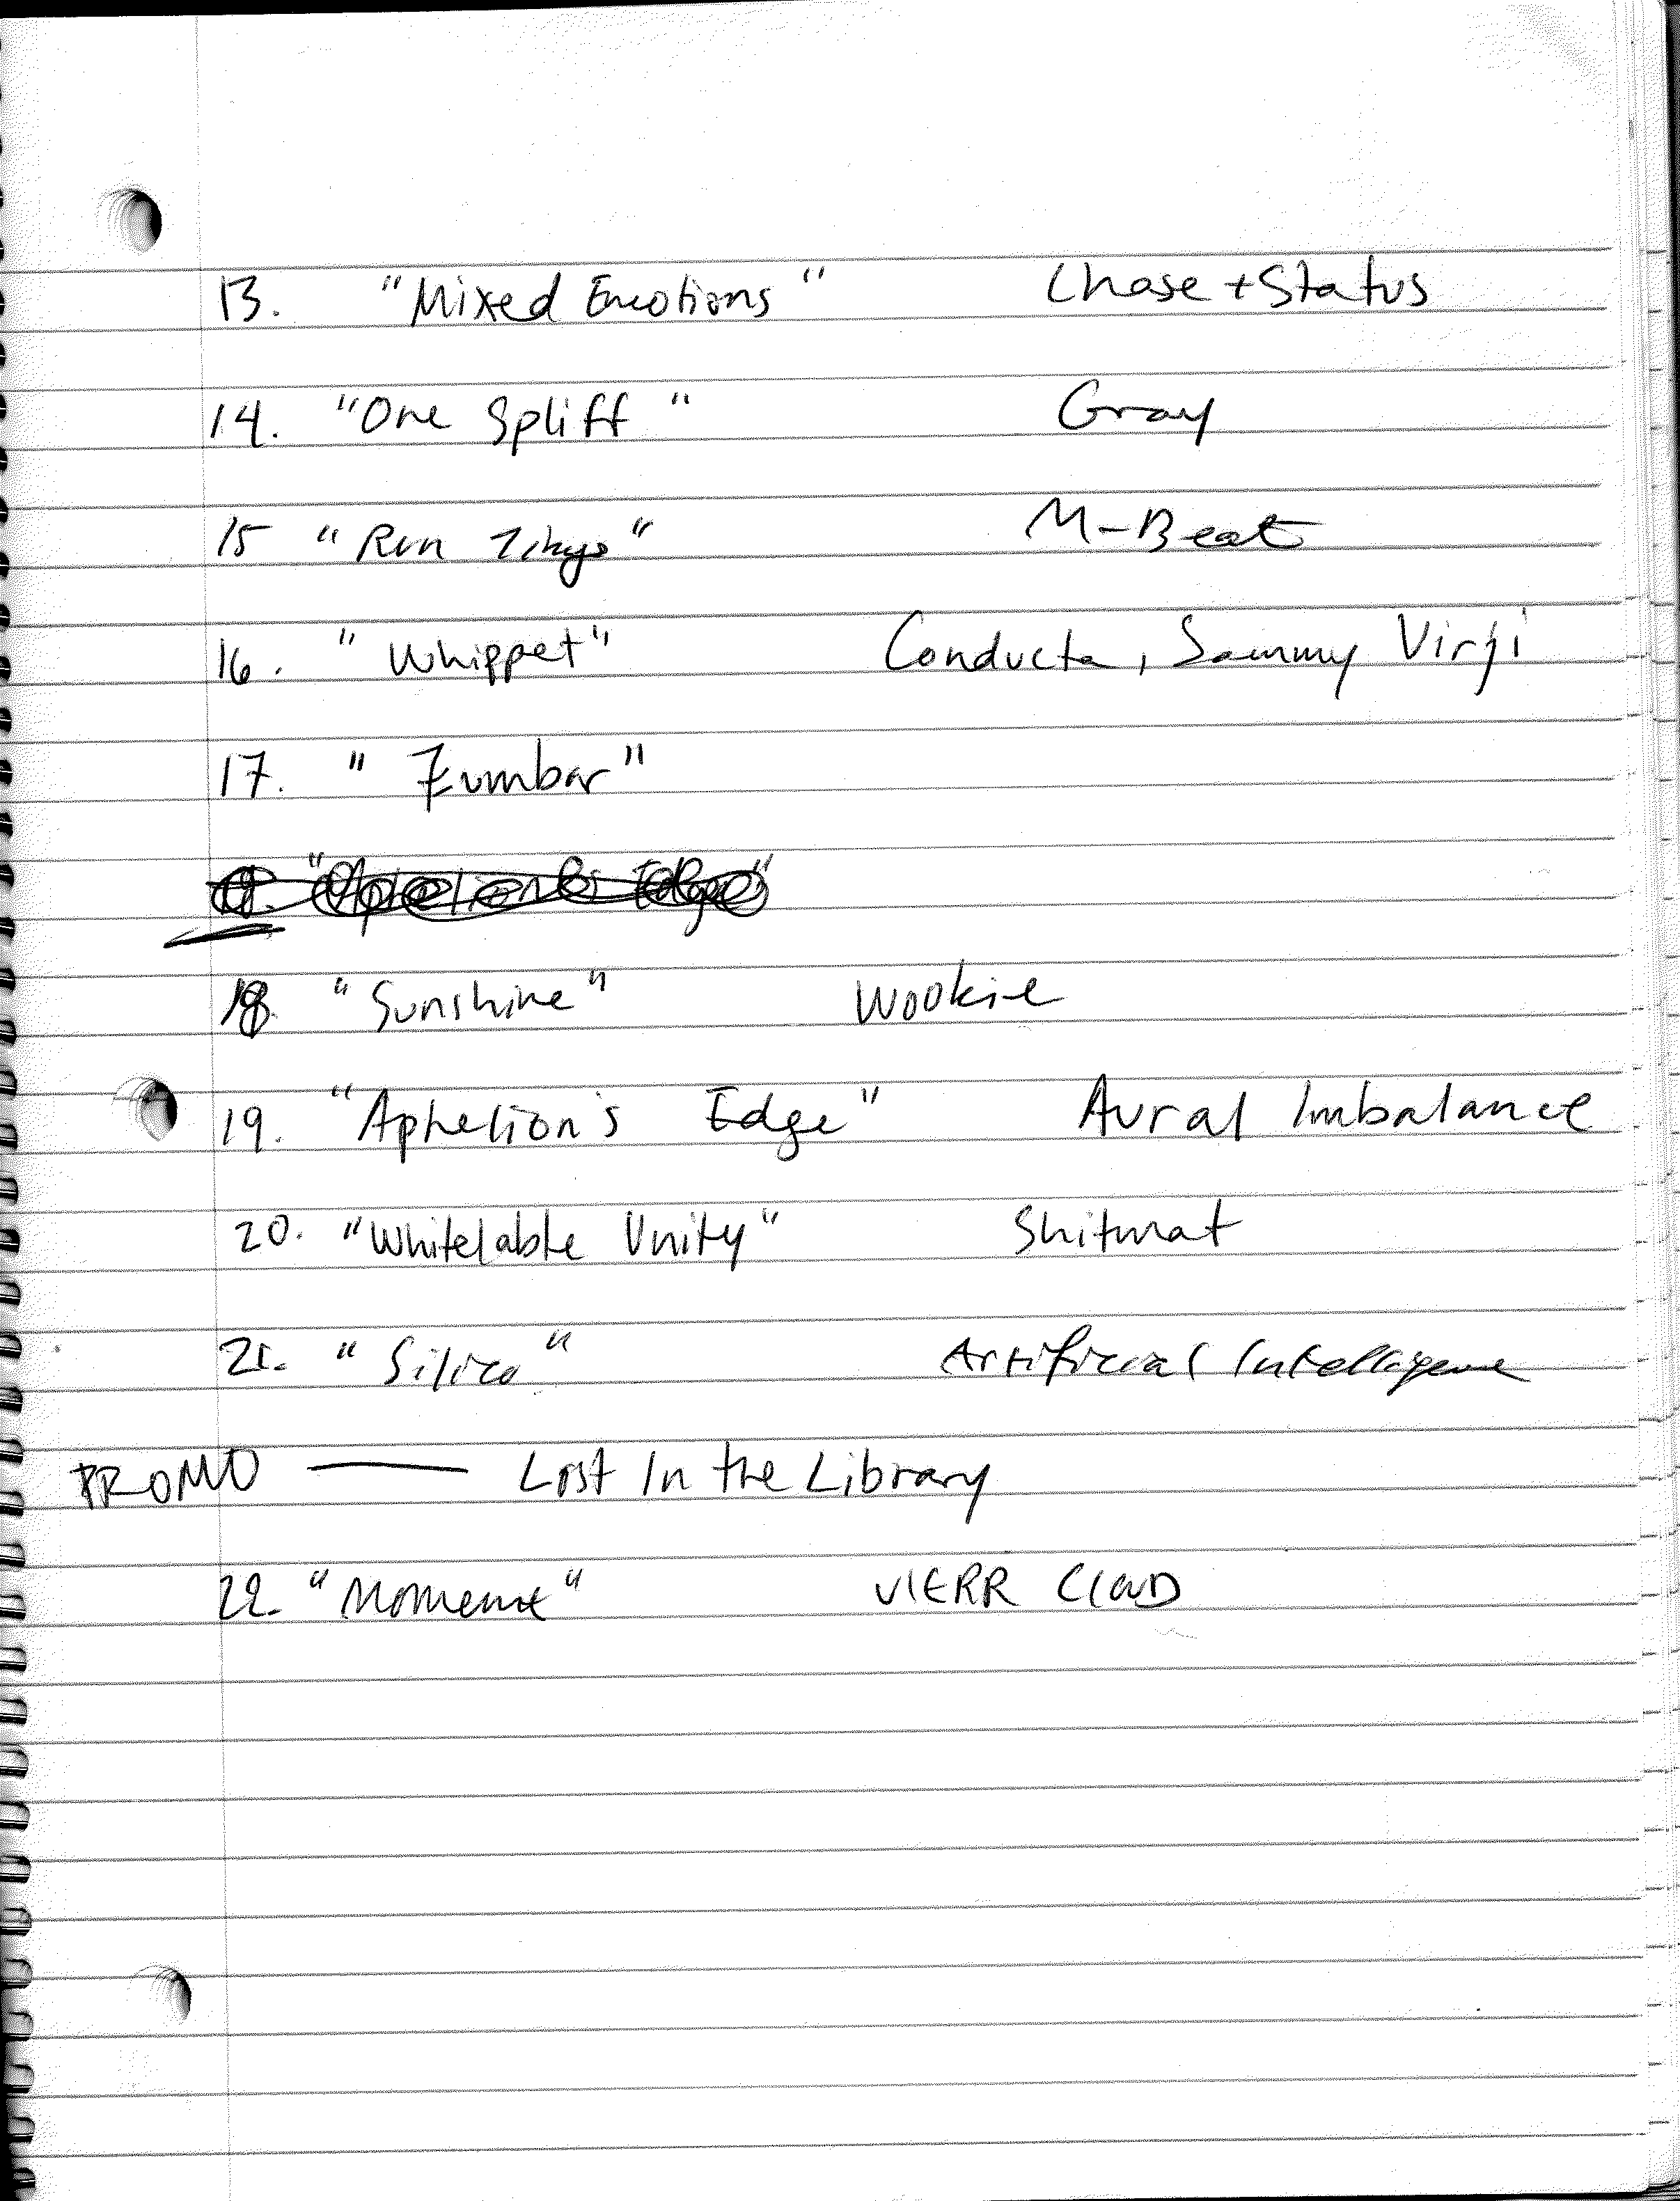 13. "Mixed Emotions" Chase + Status
14. "One Spliff" Gray
15 "Run Tingz" M-Beat
16. "Whippet" Conducta, Sammy Virji
17. "Zumbar"
"Aphelion's Edge"
18. "Sunshine" Wookie
19. "Aphelion's Edge" Aural Imbalance
20. "Whitelable Unity" Shitmat
21. "Silico" Artificial Intelligence
PROMO — Lost In the Library
22. "Moment" VIERR CloUD